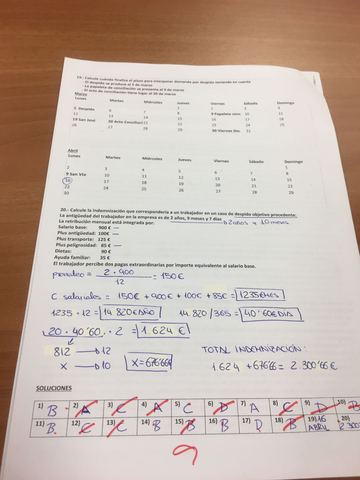 19.- Calcula cuándo finaliza el plazo para interponer demanda por despido teniendo en cuenta
- El despido se produce el 5 de marzo
- La papeleta de conciliación se presenta el 9 de marzo
- El acto de conciliación tiene lugar el 20 de marzo
Marzo
Lunes Martes Miércoles Jueves Viernes Sábado Domingo
1 2 3 4
5 Despido 6 7 8 9 Papeleta 10 11
12 13 14 15 16 17 18
19 San José 20 Acto 21 22 23 24 25
26 27 28 29 30 Viernes 31
Abril
Lunes Martes Miércoles Jueves Viernes Sábado Domingo
1
2 3 4 5 6 7 8
9 San Vte 10 11 12 13 14 15
16 17 18 19 20 21 22
23 24 25 26 27 28 29
30
20.- Calcula la indemnización que correspondería a un trabajador en un caso de despido objetivo procedente:
La antigüedad del trabajador en la empresa es de 2 años, 9 meses y 7 días
2 años + 10 meses
La retribución mensual está integrada por:
Salario base: 900 €
Plus antigüedad: 100€
Plus transporte: 125 €
Plus peligrosidad: 85 €
Dietas: 90 €
Ayuda familiar: 35 €
El trabajador percibe dos pagas extraordinarias por importe equivalente al salario base.
prorrateo = 2 · 900 / 12 = 150€
C. salariales = 150€ + 900€ + 100€ + 85€ = 1235€/MES
1235 · 12 = 14.820€/AÑO 14.820/365 = 40'60€/DIA
20 · 40'60 · 2 = 1.624 €
812 12
x 10
X = 676'66€
TOTAL INDEMNIZACIÓN:
1.624 + 676'66 = 2300'66 €
SOLUCIONES
1) B 2) A 3) C 4) A 5) C 6) D 7) A 8) C 9) D 10) B
11) B. 12) C 13) C 14) B 15) B 16) B 17) D 18) B 19) 16 ABRIL 20)
9